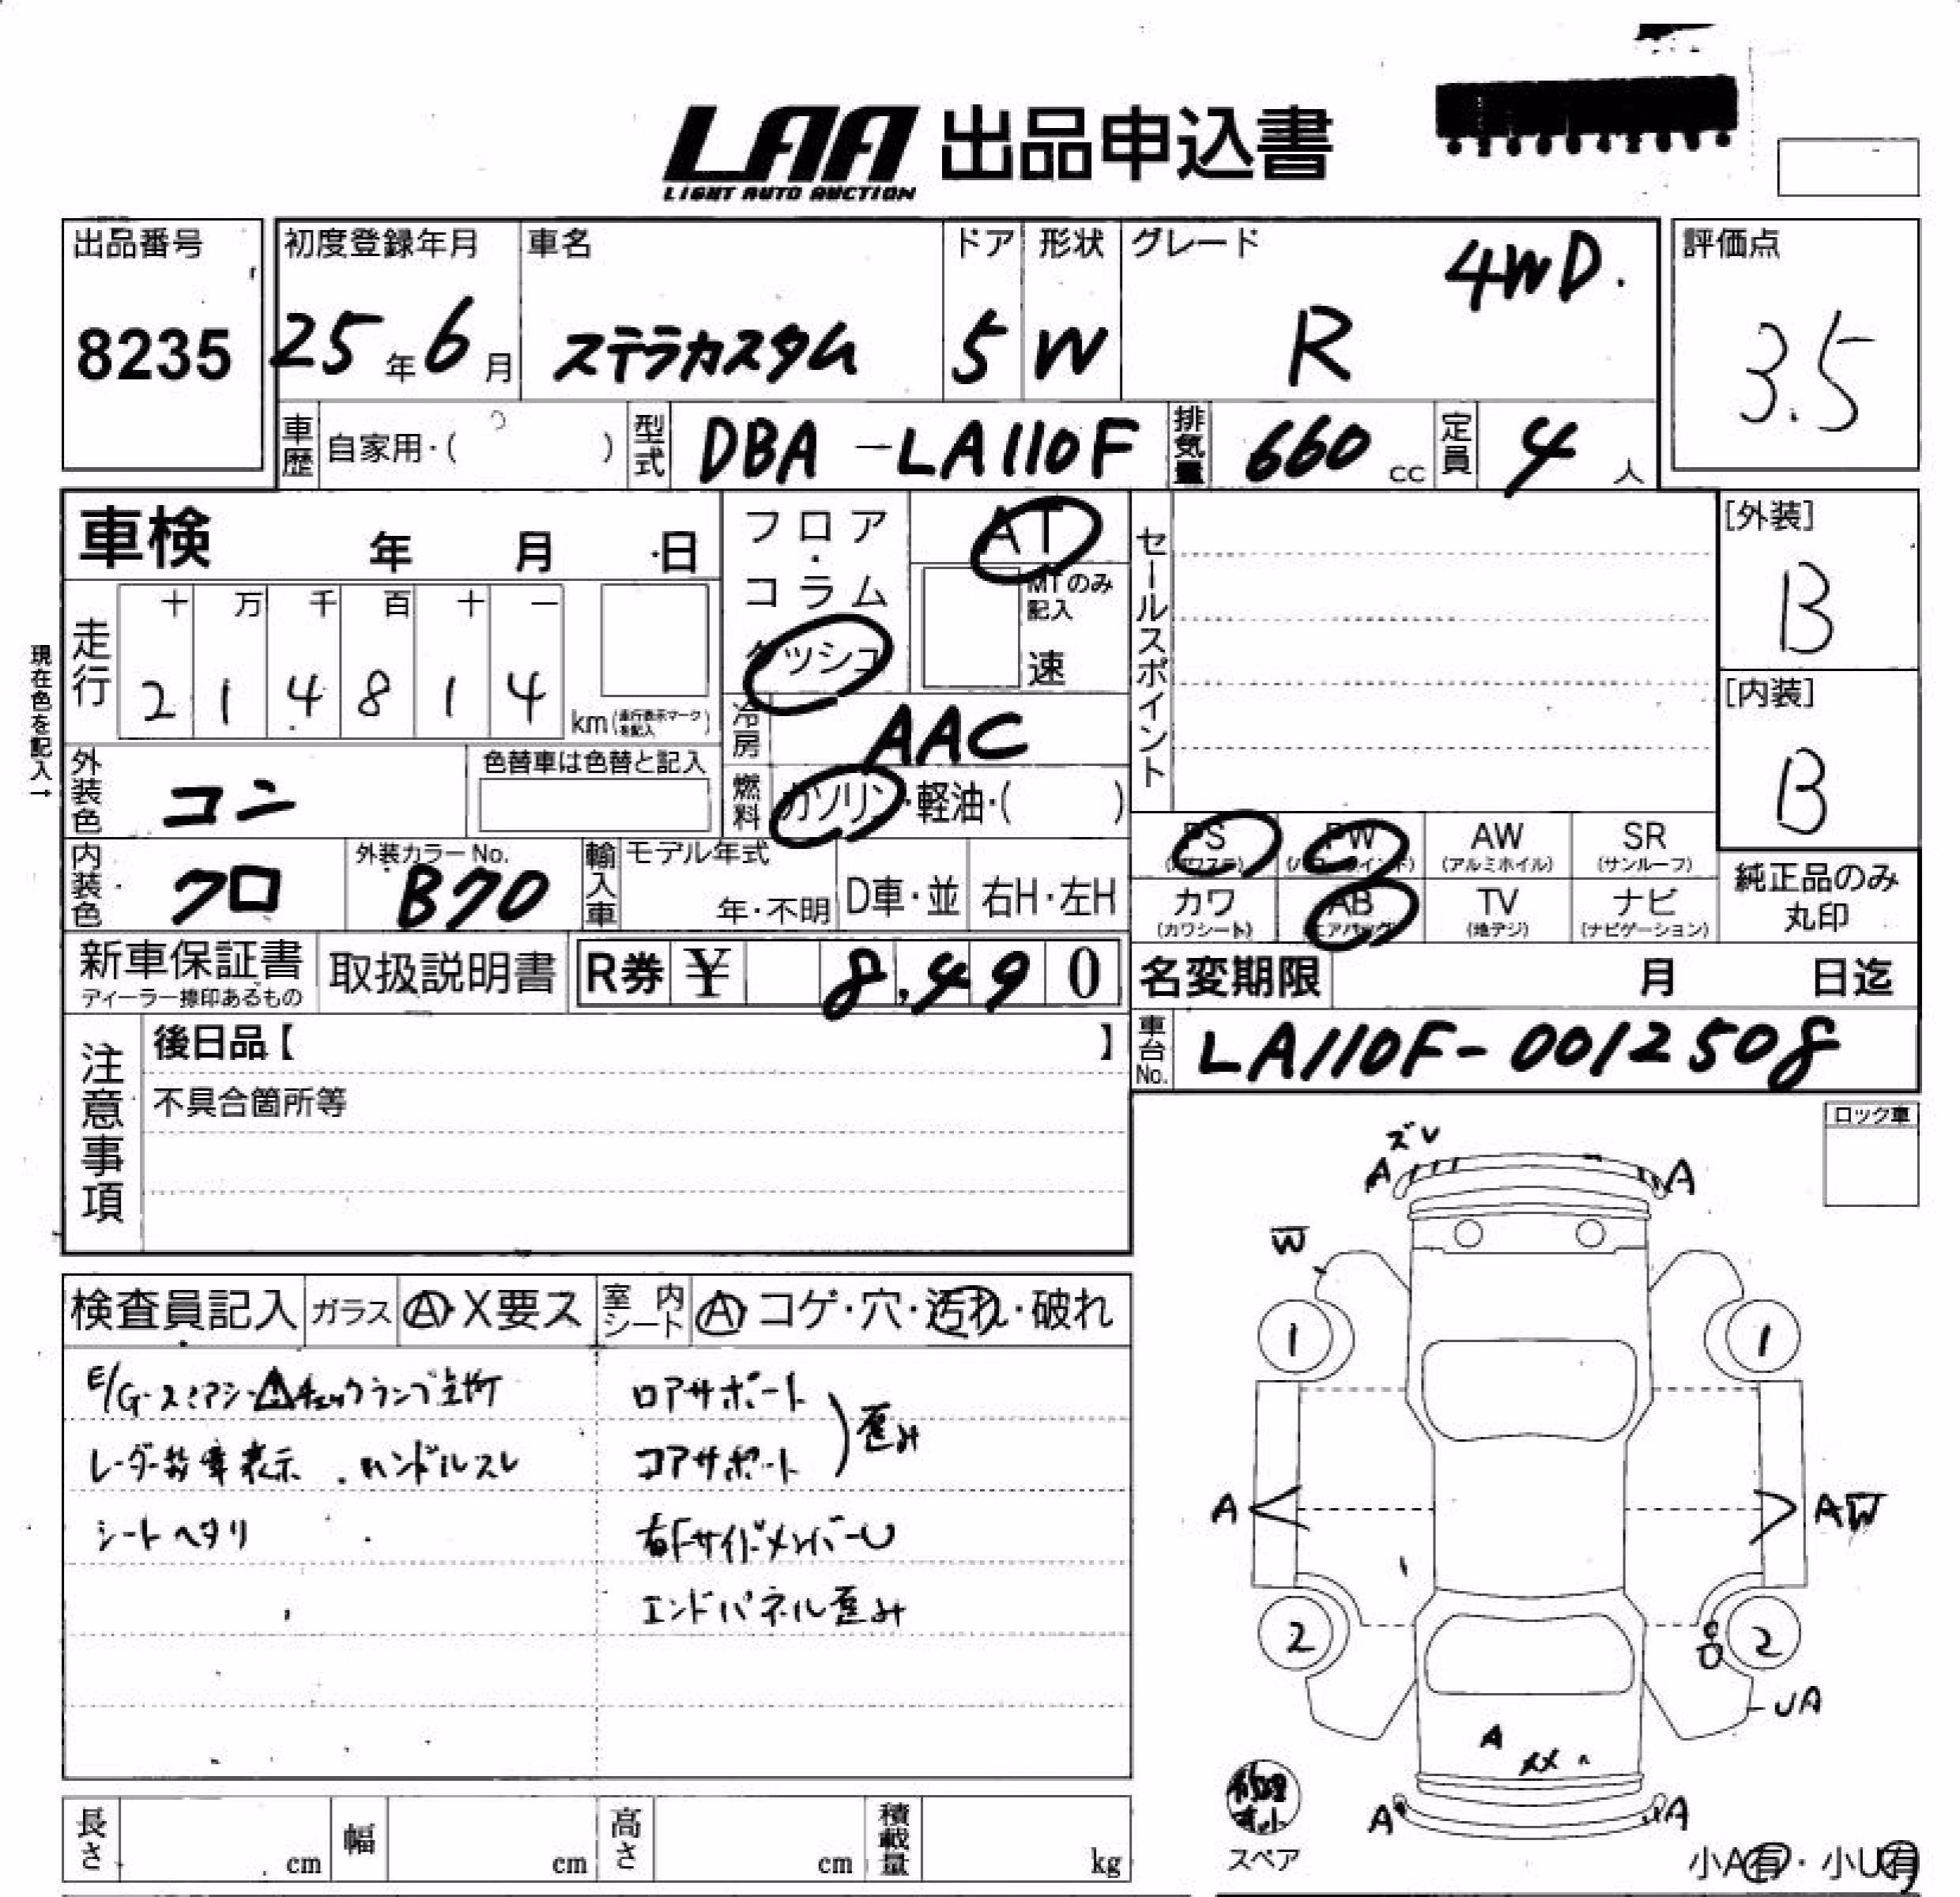 LAA 出品申込書
LIGHT AUTO AUCTION
出品番号
8235
初度登録年月
25年6月
車名
ステラカスタム
ドア
5
形状
W
グレード
R 4WD.
評価点
3.5
車歴 自家用・( )
型式 DBA-LA110F
排気量 660 cc
定員 4 人
車検 年 月 日
フロア・コラム
ダッシュ
AT
MTのみ記入
速
セールスポイント
[外装]
B
[内装]
B
現在色を記入→
走行
十 万 千 百 十 一
2 1 4 8 1 4
km(走行表示マークを記入)
冷房 AAC
燃料 ガソリン・軽油・( )
外装色 コン
色替車は色替と記入
内装色 クロ
外装カラーNo.
B70
輸入車
モデル年式
年・不明
D車・並
右H・左H
PS (パワステ)
PW (パワーウインド)
AW (アルミホイル)
SR (サンルーフ)
カワ (カワシート)
AB (エアバッグ)
TV (地デジ)
ナビ (ナビゲーション)
純正品のみ丸印
新車保証書
ディーラー捺印あるもの
取扱説明書
R券 ¥ 8,490
名変期限 月 日迄
車台No. LA110F-0012508
注意事項
後日品【 】
不具合箇所等
ロック車
検査員記入
ガラス A・X要ス
室内シート A・コゲ・穴・汚れ・破れ
チェックランプ点灯
レーダー故障表示 . ハンドルスレ
シートヘタリ
ロアサポート
コアサポート
歪み
右FサイドメンバーU
エンドパネル歪み
ズレ
A A
W
1 1
A AW
2 2
UA
A
XX
A A
修理キット
スペア
小A有・小U有
長さ cm
幅 cm
高さ cm
積載量 kg